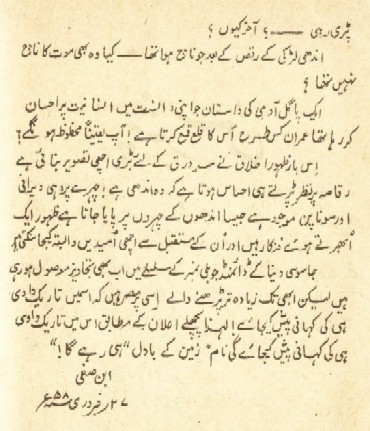 پڑی رہی ــــــ ؟ آخر کیوں ؟
اندھی لڑکی کے رقص کے بعد جو ناچ ہوا تھا ــــ کیا وہ بھی موت کا ناچ
نہیں تھا ؟
ایک پاگل آدمی کی داستان جو اپنی دانست میں انسانیت پر احسان
کر رہا تھا عمران کس طرح اُس کا قلع قمع کرتا ہے ! آپ یقیناً محظوظ ہوں گے!
اِس بار ظہور اخلاق نے سرورق کے لئے بڑی اچھی تصویر بنائی ہے
رقاصہ پر نظر پڑتے ہی احساس ہوتا ہے کہ وہ اندھی ہے! چہرے پر وہی ویرانی
اور سوناپن موجود ہے جیسا اندھوں کے چہروں پر پایا جاتا ہے ظہور ایک
اُبھرتے ہوئے فنکار ہیں اور ان کے مستقبل سے اچھی اُمیدیں وابستہ کیجا سکتی ہیں
جاسوسی دنیا کے ڈائمنڈ جوبلی نمبر کے سلسلے میں اب بھی تجاویز موصول ہو رہی
ہیں لیکن ابھی تک زیادہ تر پڑھنے والے اِسی پر مصر ہیں کہ اسمیں تاریک وادی
ہی کی کہانی پیش کیجائے! لہٰذا پچھلے اعلان کے مطابق اس میں تاریک وادی
ہی کی کہانی پیش کیجائے گی نام "زمین کے بادل" ہی رہے گا!"
ابن صفی
۲۷ فروری ۵۸ء